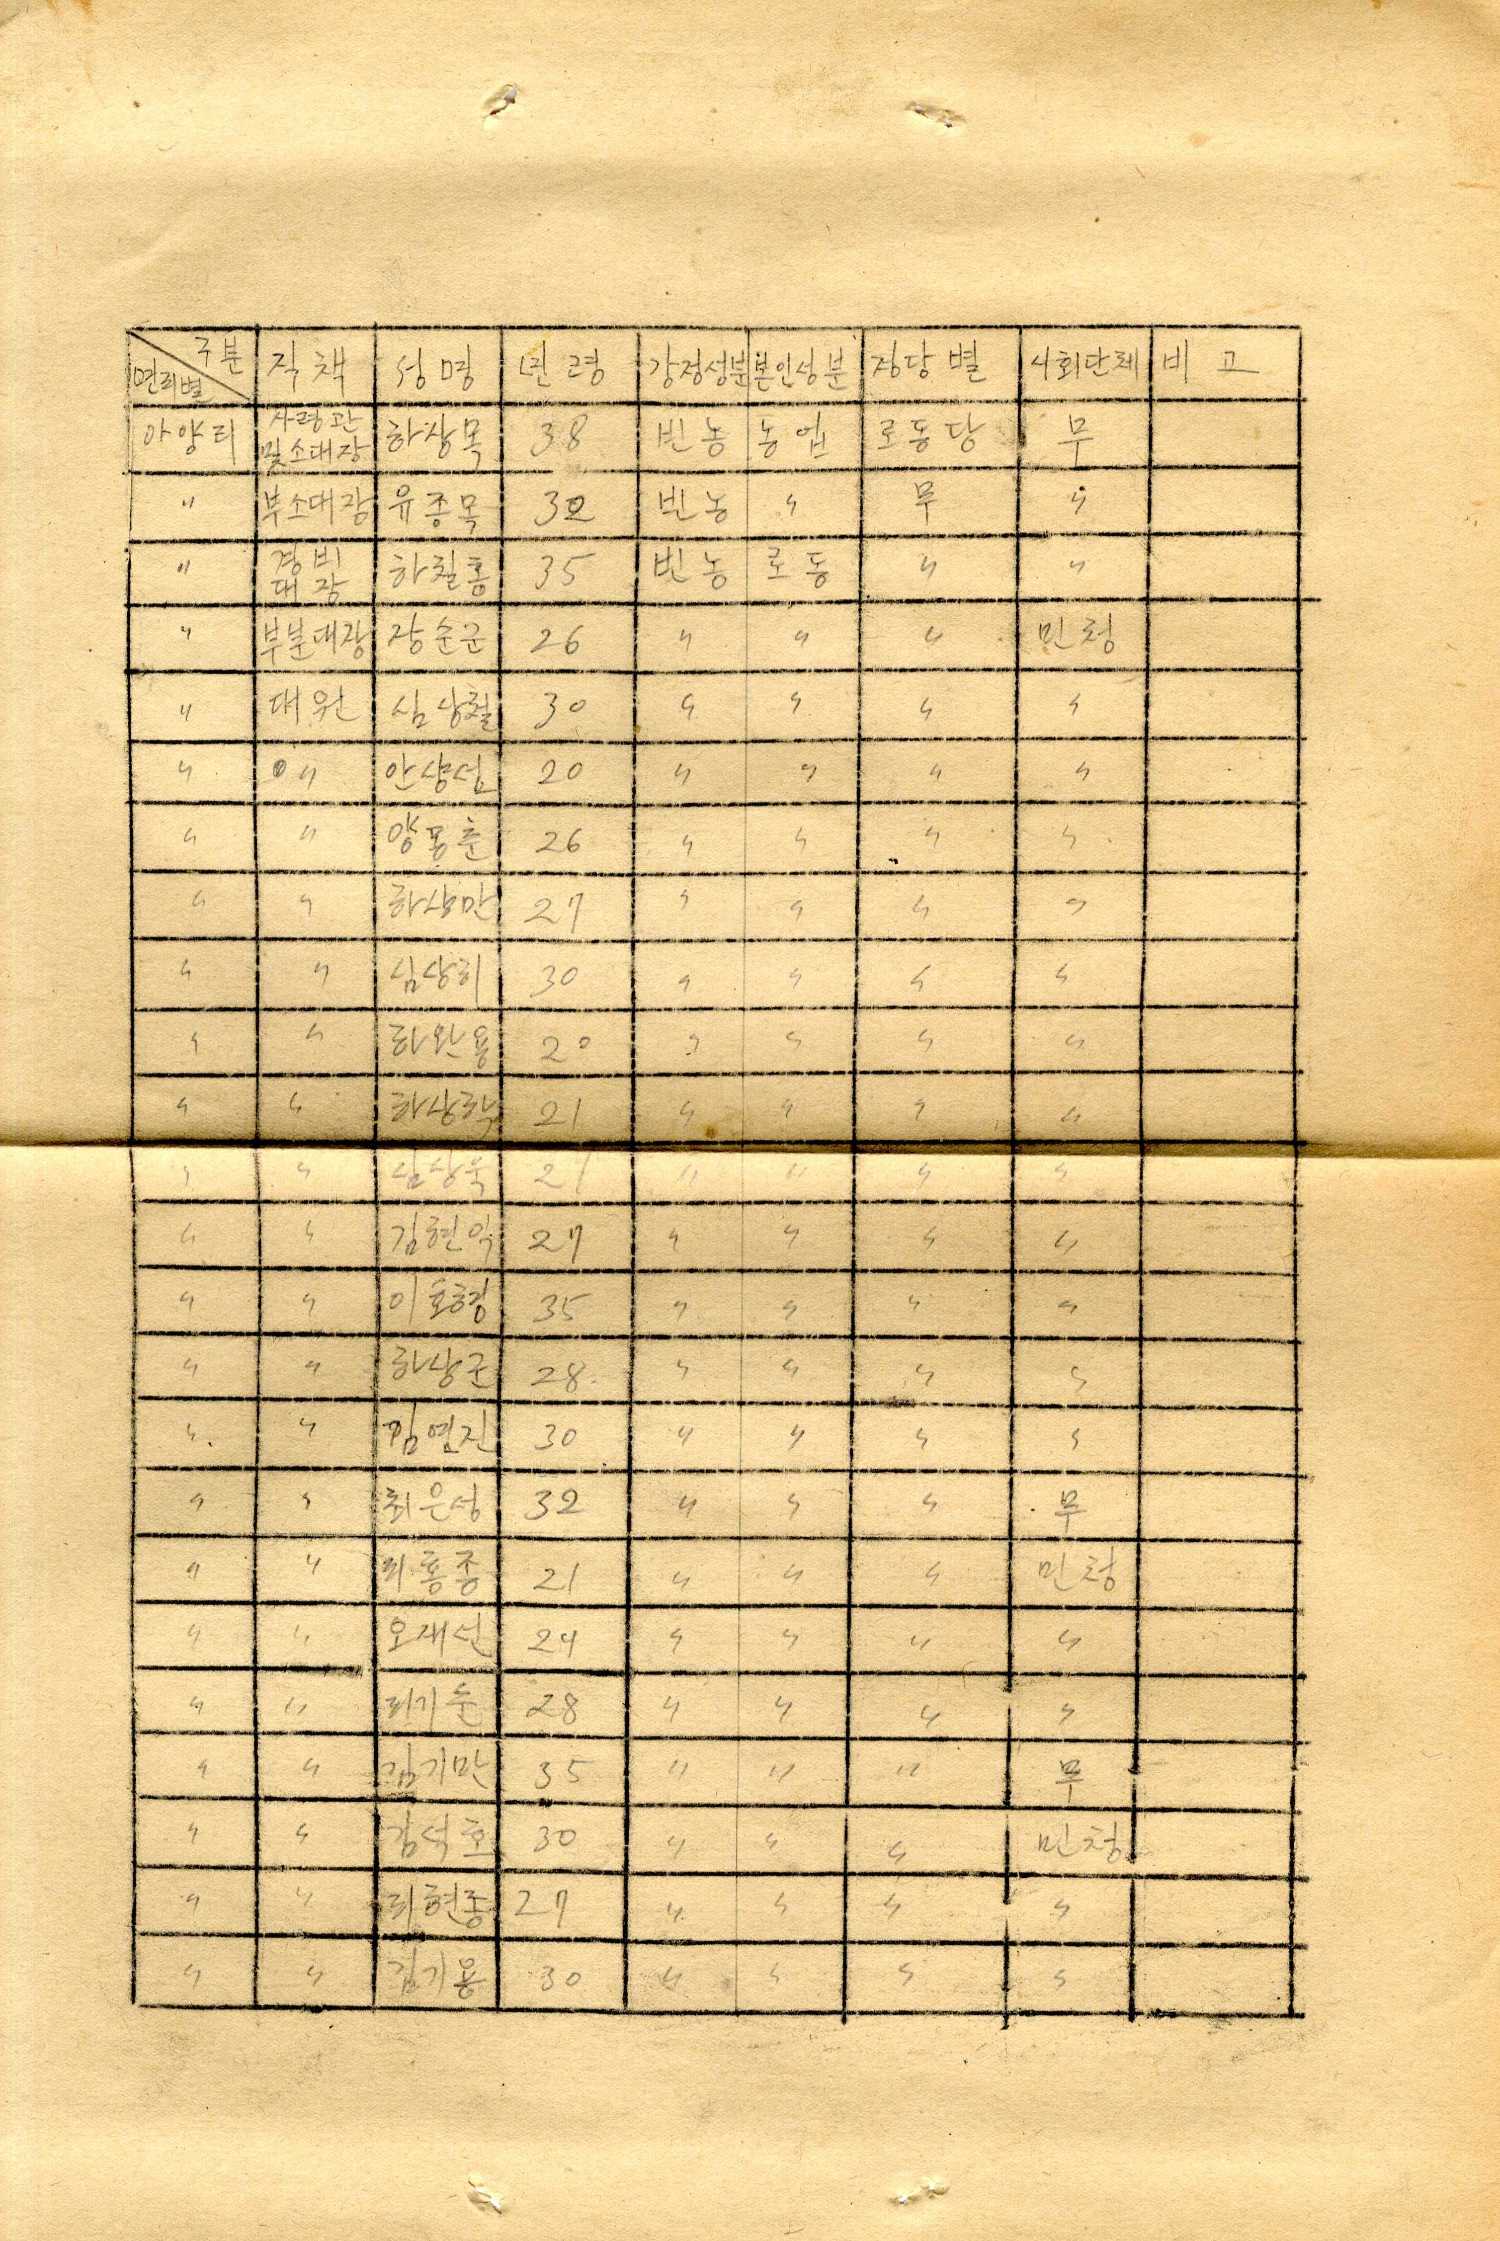 구분 면리별 직책 성명 년령 가정성분 본인성분 정당별 사회단체 비고
아양리 사령관 및 소대장 하상목 38 빈농 농업 로동당 무
〃 부소대장 유종목 32 빈농 〃 무 〃
〃 경비대장 하칠홍 35 빈농 로동 〃 〃
〃 부분대장 장순군 26 〃 〃 〃 민청
〃 대원 심상철 30 〃 〃 〃 〃
〃 〃 안상섭 20 〃 〃 〃 〃
〃 〃 양홍춘 26 〃 〃 〃 〃
〃 〃 27 〃 〃 〃 〃
〃 〃 30 〃 〃 〃 〃
〃 〃 20 〃 〃 〃 〃
〃 〃 21 〃 〃 〃 〃
〃 〃 21 〃 〃 〃 〃
〃 〃 김현옥 27 〃 〃 〃 〃
〃 〃 35 〃 〃 〃 〃
〃 〃 하상군 28 〃 〃 〃 〃
〃 〃 30 〃 〃 〃 〃
〃 〃 최은성 32 〃 〃 〃 무
〃 〃 리홍종 21 〃 〃 〃 민청
〃 〃 오재선 24 〃 〃 〃 〃
〃 〃 리기순 28 〃 〃 〃 〃
〃 〃 김기만 35 〃 〃 〃 무
〃 〃 김석호 30 〃 〃 〃 민청
〃 〃 리현종 27 〃 〃 〃 〃
〃 〃 김기용 30 〃 〃 〃 〃